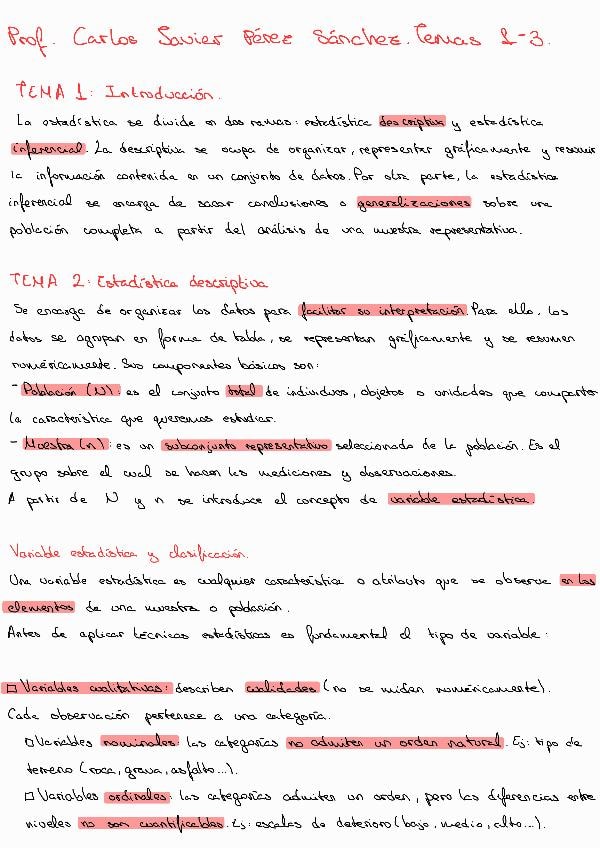 Prof. Carlos Javier Pérez Sánchez. Temas 1-3.
TEMA 1: Introducción.
La estadística se divide en dos ramas: estadística descriptiva y estadística
inferencial. La descriptiva se ocupa de organizar, representar gráficamente y resumir
la información contenida en un conjunto de datos. Por otra parte, la estadística
inferencial se encarga de sacar conclusiones o generalizaciones sobre una
población completa a partir del análisis de una muestra representativa.
TEMA 2: Estadística descriptiva
Se encarga de organizar los datos para facilitar su interpretación. Para ello, los
datos se agrupan en forma de tabla, se representan gráficamente y se resumen
numéricamente. Sus componentes básicos son:
- Población (N): es el conjunto total de individuos, objetos o unidades que comparten
la característica que queremos estudiar.
- Muestra (n): es un subconjunto representativo seleccionado de la población. Es el
grupo sobre el cual se hacen las mediciones y observaciones.
A partir de N y n se introduce el concepto de variable estadística.
Variable estadística y clasificación.
Una variable estadística es cualquier característica o atributo que se observe en los
elementos de una muestra o población.
Antes de aplicar técnicas estadísticas es fundamental el tipo de variable:
□ Variables cualitativas: describen cualidades (no se miden numéricamente).
Cada observación pertenece a una categoría.
□ Variables nominales: las categorías no admiten un orden natural. Ej: tipo de
terreno (roca, grava, asfalto...).
□ Variables ordinales: las categorías admiten un orden, pero las diferencias entre
niveles no son cuantificables. Ej: escalas de deterioro (bajo, medio, alto...).